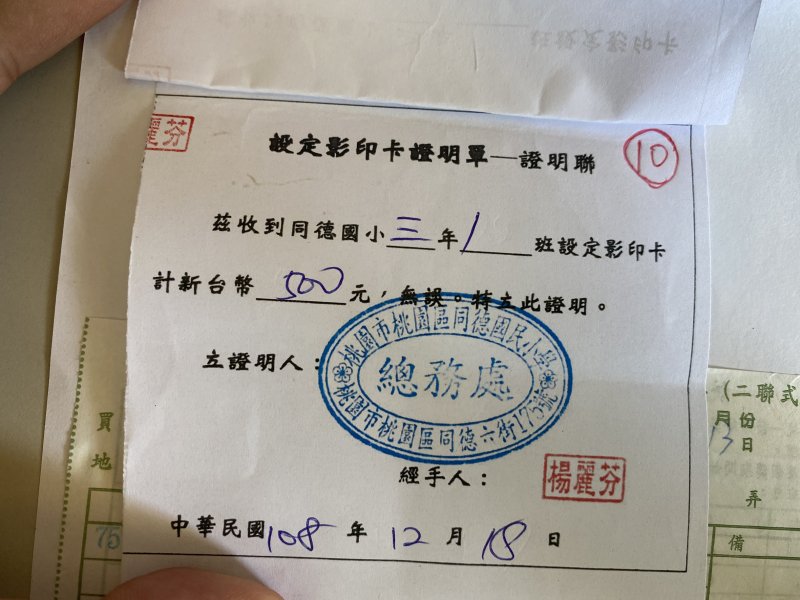 麗芬
設定影印卡證明單—證明聯
10
茲收到同德國小三年1班設定影印卡
計新台幣500元，無誤。特立此證明。
立證明人：
桃園市桃園區同德國民小學
總務處
桃園市桃園區同德六街175號
經手人：
楊麗芬
中華民國108年12月18日
買
地
75
(二聯式
月份
13日
弄
備